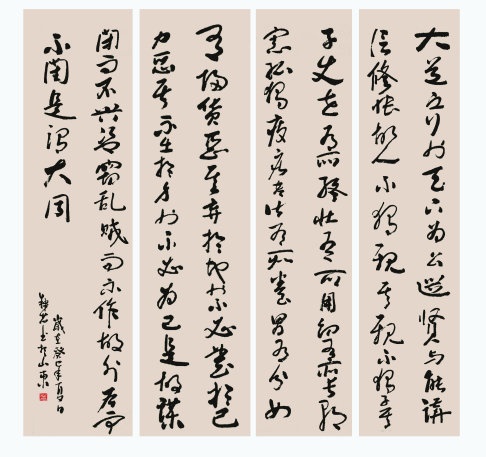 大道之行也天下为公選贤与能讲
信修睦故人不独亲其亲不独子其
子使老有所终壮有所用幼有所长
寡孤独废疾者皆有所养男有分女
有归货恶其弃於地也不必藏於己
力恶其不出於身也不必为己是故谋
闭而不兴盗窃乱贼而不作故外户而
不闭是谓大同
歲在癸巳年夏月